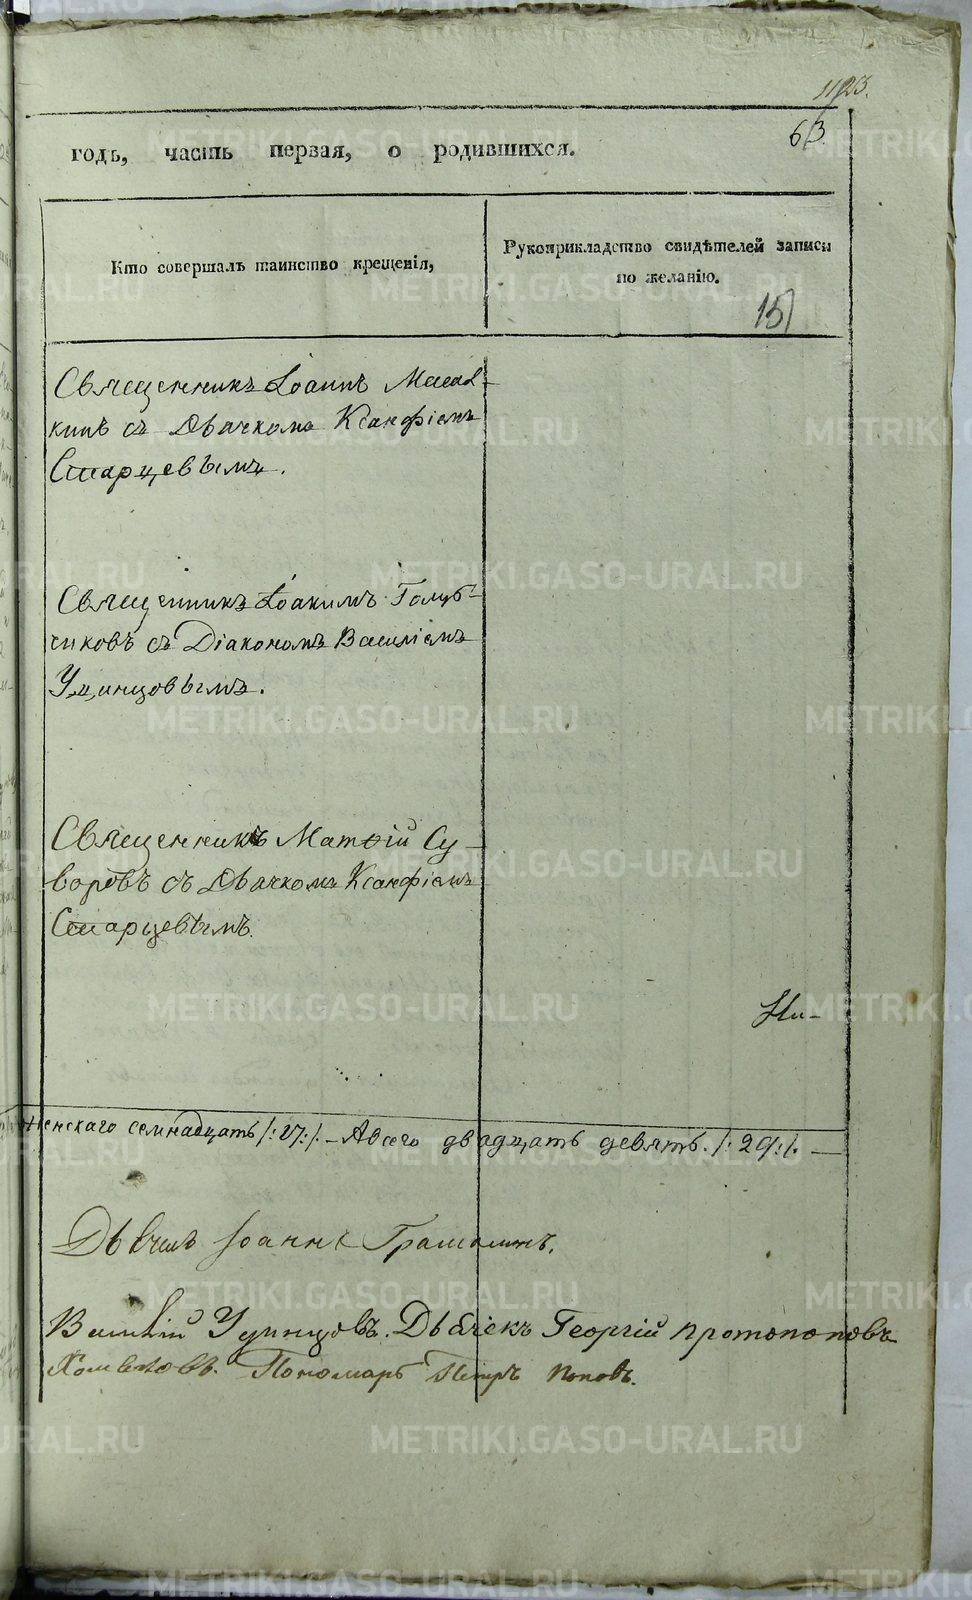 1123.
63
годъ, часть первая, о родившихся.
Кто совершалъ таинство крещенія,
Рукоприкладство свидѣтелей записи
по желанію.
151
Священникъ Іоаннъ
съ Дьячкомъ Ксанфіемъ
Старцевымъ.
Священникъ Іоакимъ Голуб-
чиковъ съ Діакономъ Василіемъ
Удинцовымъ.
Священникъ Матѳій Су-
воровъ съ Дьячкомъ Ксанфіемъ
Старцевымъ.
Ни-
женскаго семнадцать /:17:/. – А всего двадцать девять. /:29:/. —
Іоаннъ
Василій Удинцовъ. Георгій Протопоповъ
Пономарь Петръ Поповъ.
METRIKI.GASO-URAL.RU